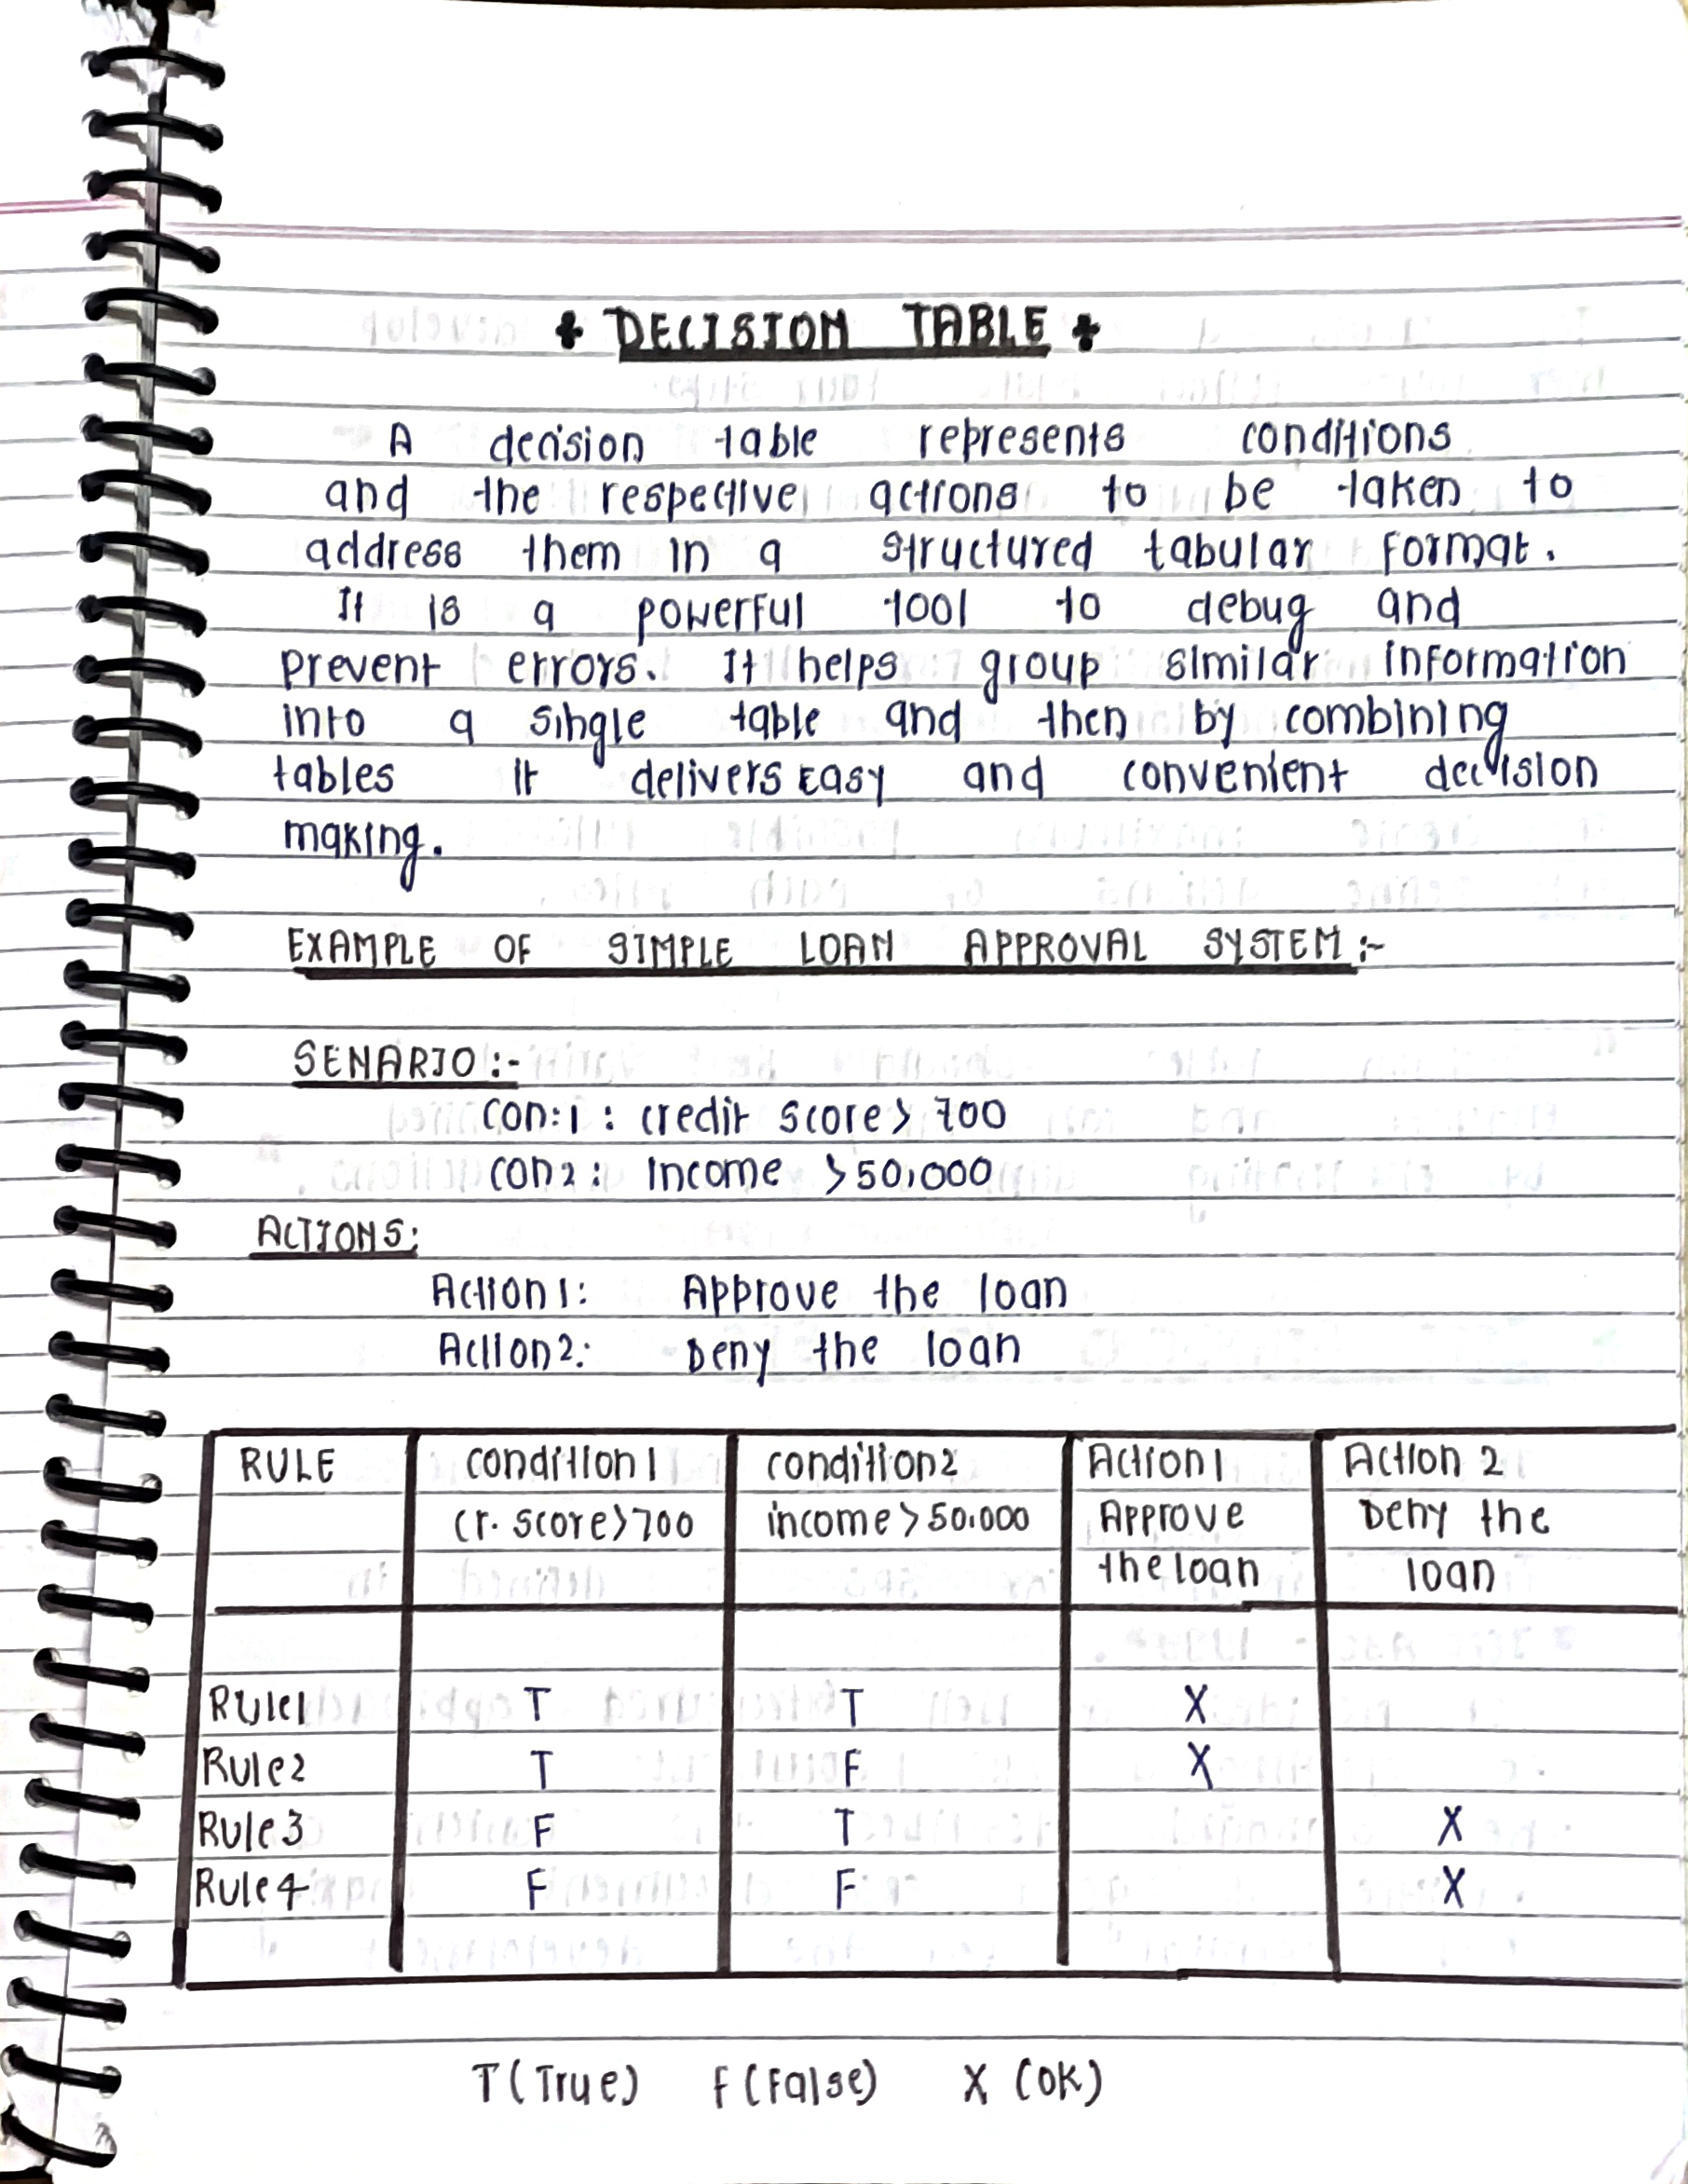 DECISION TABLE
A decision table represents conditions
and the respective actions to be taken to
address them in a structured tabular format.
It is a powerful tool to debug and
prevent errors. It helps group similar information
into a single table and then by combining
tables it delivers easy and convenient decision
making.
EXAMPLE OF SIMPLE LOAN APPROVAL SYSTEM:-
SENARIO:-
Con:1 : credit score > 700
Con2: Income > 50,000
ACTIONS:
Action1: Approve the loan
Action2: Deny the loan
RULE condition1 condition2 Action1 Action 2
cr. score>700 income>50,000 Approve Deny the
the loan loan
Rule1 T T X
Rule2 T F X
Rule3 F T X
Rule4 F F X
T(True) F(False) X (OK)